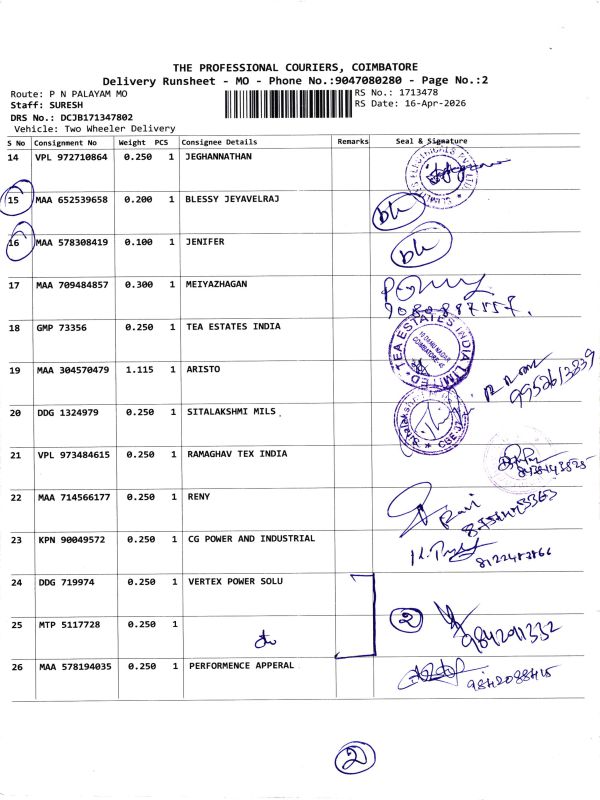 THE PROFESSIONAL COURIERS, COIMBATORE
Delivery Runsheet - MO - Phone No.:9047080280 - Page No.:2
Route: P N PALAYAM MO
RS No.: 1713478
Staff: SURESH
RS Date: 16-Apr-2026
DRS No.: DCJB171347802
Vehicle: Two Wheeler Delivery
S No Consignment No Weight PCS Consignee Details Remarks Seal & Signature
14 VPL 972710864 0.250 1 JEGHANNATHAN
15 MAA 652539658 0.200 1 BLESSY JEYAVELRAJ
16 MAA 578308419 0.100 1 JENIFER
17 MAA 709484857 0.300 1 MEIYAZHAGAN
18 GMP 73356 0.250 1 TEA ESTATES INDIA
TEA ESTATES INDIA LIMITED
19 MAA 304570479 1.115 1 ARISTO
9952613839
20 DDG 1324979 0.250 1 SITALAKSHMI MILS
21 VPL 973484615 0.250 1 RAMAGHAV TEX INDIA
22 MAA 714566177 0.250 1 RENY
Ravi
23 KPN 90049572 0.250 1 CG POWER AND INDUSTRIAL
24 DDG 719974 0.250 1 VERTEX POWER SOLU
2
25 MTP 5117728 0.250 1
9842011332
26 MAA 578194035 0.250 1 PERFORMENCE APPERAL
2